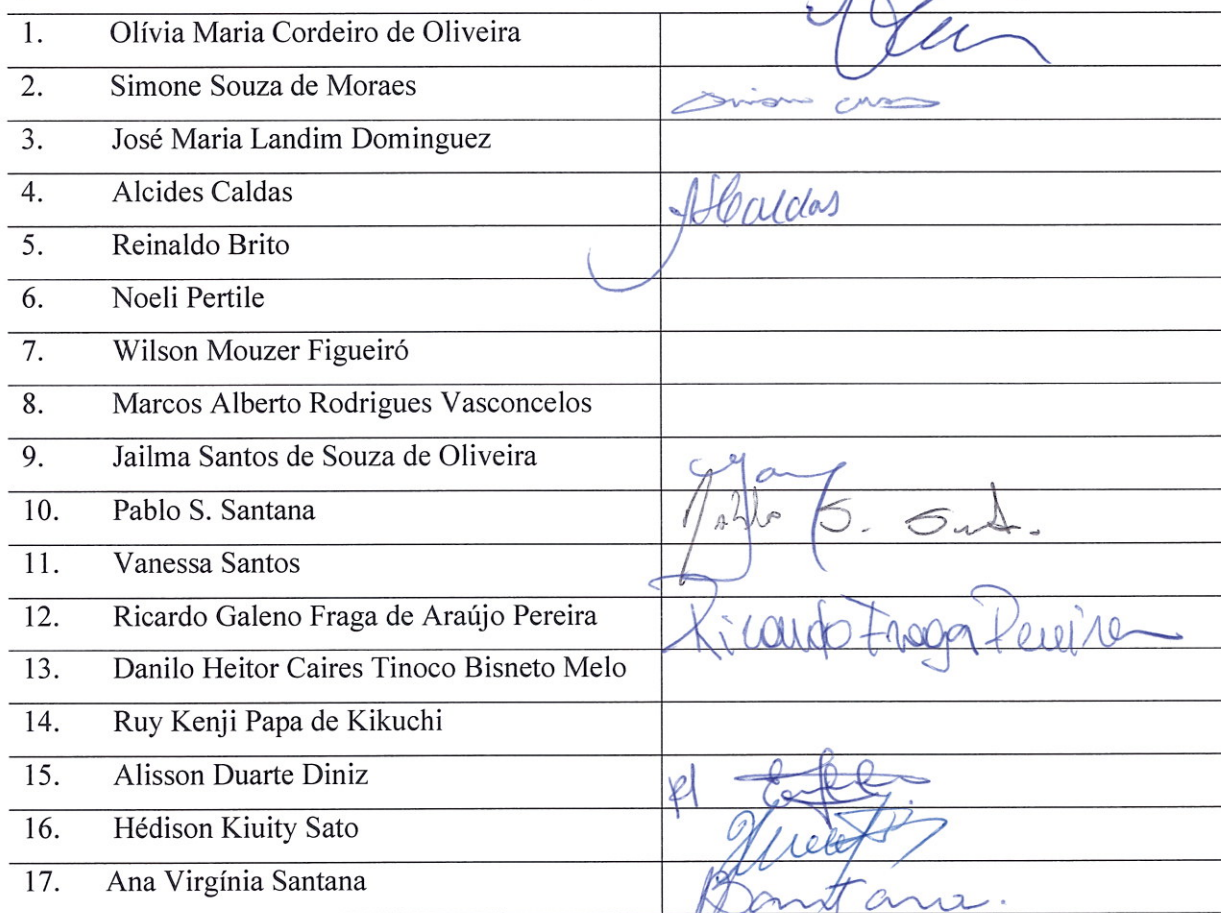 1. Olívia Maria Cordeiro de Oliveira
2. Simone Souza de Moraes
3. José Maria Landim Dominguez
4. Alcides Caldas AlCaldas
5. Reinaldo Brito
6. Noeli Pertile
7. Wilson Mouzer Figueiró
8. Marcos Alberto Rodrigues Vasconcelos
9. Jailma Santos de Souza de Oliveira
10. Pablo S. Santana Pablo S.
11. Vanessa Santos
12. Ricardo Galeno Fraga de Araújo Pereira Ricardo Fraga Pereira
13. Danilo Heitor Caires Tinoco Bisneto Melo
14. Ruy Kenji Papa de Kikuchi
15. Alisson Duarte Diniz p/
16. Hédison Kiuity Sato
17. Ana Virgínia Santana Santana.